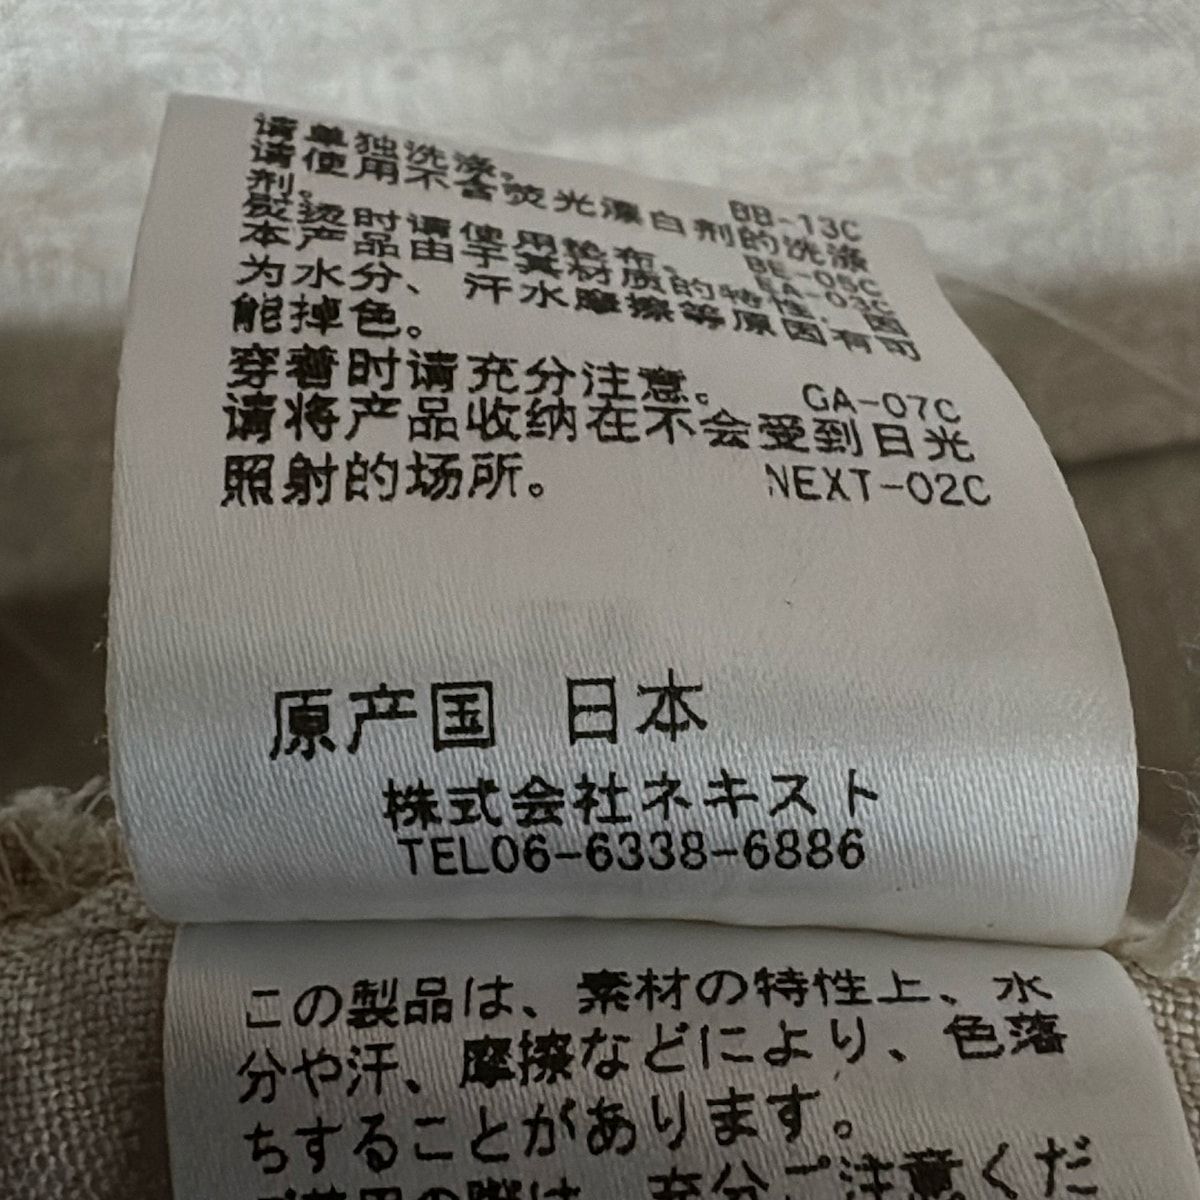 请单独洗涤。 BB-13C
请使用不含荧光漂白剂的洗涤
剂。 BE-05C
熨烫时请使用垫布。 EA-03C
本产品由于其材质的特性，因
为水分、汗水摩擦等原因有可
能掉色。
穿着时请充分注意。 GA-07C
请将产品收纳在不会受到日光
照射的场所。 NEXT-02C
原产国 日本
株式会社ネキスト
TEL06-6338-6886
この製品は、素材の特性上、水
分や汗、摩擦などにより、色落
ちすることがあります。
の際は、充分ご注意くだ